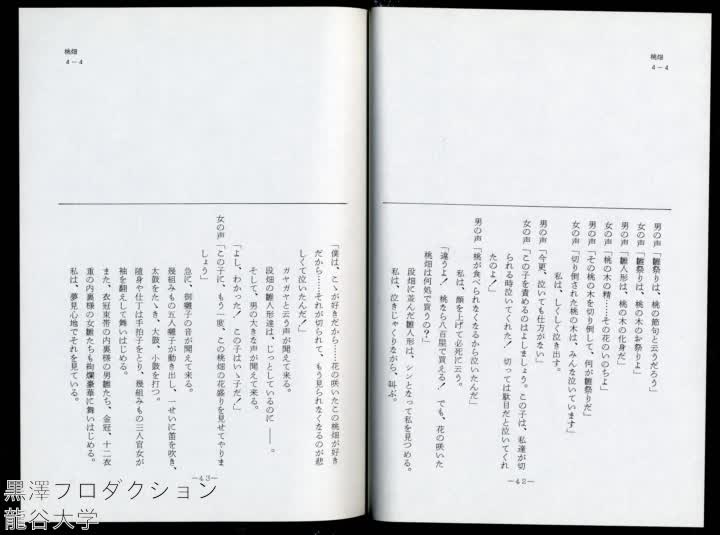 桃畑
4－4
男の声「雛祭りは、桃の節句と云うだろう」
女の声「雛祭りは、桃の木のお祭りよ」
男の声「雛人形は、桃の木の化身だ」
女の声「桃の木の精……その花のいのちよ」
男の声「その桃の木を切り倒して、何が雛祭りだ」
女の声「切り倒された桃の木は、みんな泣いています」
私は、しくしく泣き出す。
男の声「今更、泣いても仕方がない」
女の声「この子を責めるのはよしましょう。この子は、私達が切
られる時泣いてくれた！　切っては駄目だと泣いてくれ
たのよ！」
男の声「桃が食べられなくなるから泣いたんだ」
私は、顔を上げて必死に云う。
「違うよ！　桃なら八百屋で買える！　でも、花の咲いた
桃畑は何処で買うの？」
段畑に並んだ雛人形は、シンとなって私を見つめる。
私は、泣きじゃくりながら、叫ぶ。
－42－
桃畑
4－4
「僕は、こゝが好きだから……花の咲いたこの桃畑が好き
だから……それが切られて、もう見られなくなるのが悲
しくて泣いたんだ！」
ガヤガヤと云う声が聞えて来る。
段畑の雛人形達は、じっとしているのに――。
そして、男の大きな声が聞えて来る。
「よし、わかった！　この子はいゝ子だ！」
女の声「この子に、もう一度、この桃畑の花盛りを見せてやりま
しょう」
急に、御囃子の音が聞えて来る。
幾組みもの五人囃子が動き出し、一せいに笛を吹き、
太鼓をたゝき、大鼓、小鼓を打つ。
随身や仕丁は手拍子をとり、幾組みもの三人官女が
袖を翻えして舞いはじめる。
また、衣冠束帯の内裏様の男雛たち、金冠、十二衣
重の内裏様の女雛たちも絢爛豪華に舞いはじめる。
私は、夢見心地でそれを見ている。
－43－
黒澤プロダクション
龍谷大学